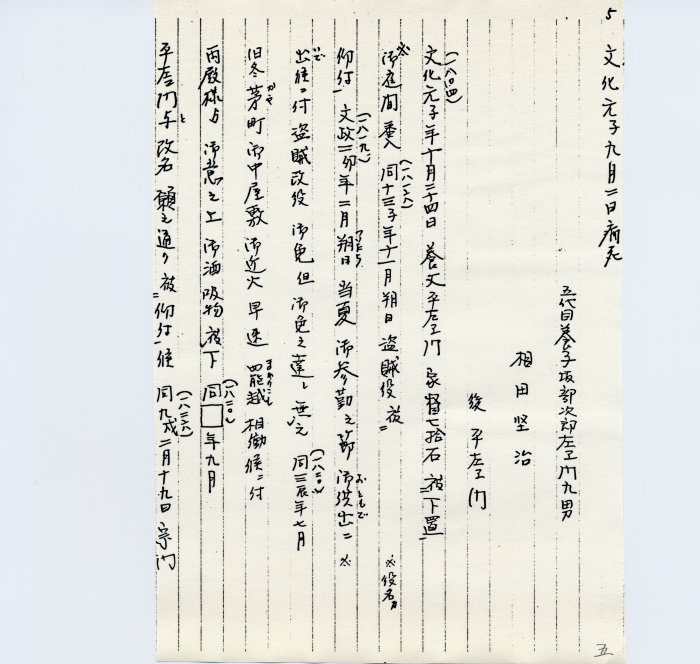 5
文化元子九月二日病死
五代目養子坂部次郎左エ門九男
相田堅治
後平左エ門
(一八〇四)
文化元子年十月二十四日 養父平左エ門 家督七拾石 被下置
※御庭間番入 同十三子年十一月朔日 盗賊役被 ※役名カ
仰付 文政二卯年二月朔日 当夏御参勤之節 御供出ニ ※
(一八一九) ついたち おともで
出候ニ付 盗賊改役 御免 但 御免之達し無之 同三辰年七月
(一八二〇)
旧冬茅町御中屋敷御近火 早速罷越相働候ニ付
かや まかりこし
両殿様与 御意之上 御酒吸物被下 同□年九月
(一八二〇)
平左門与改名 願之通り被仰付候 同九戌二月十九日 宗門
と (一八二六)
五